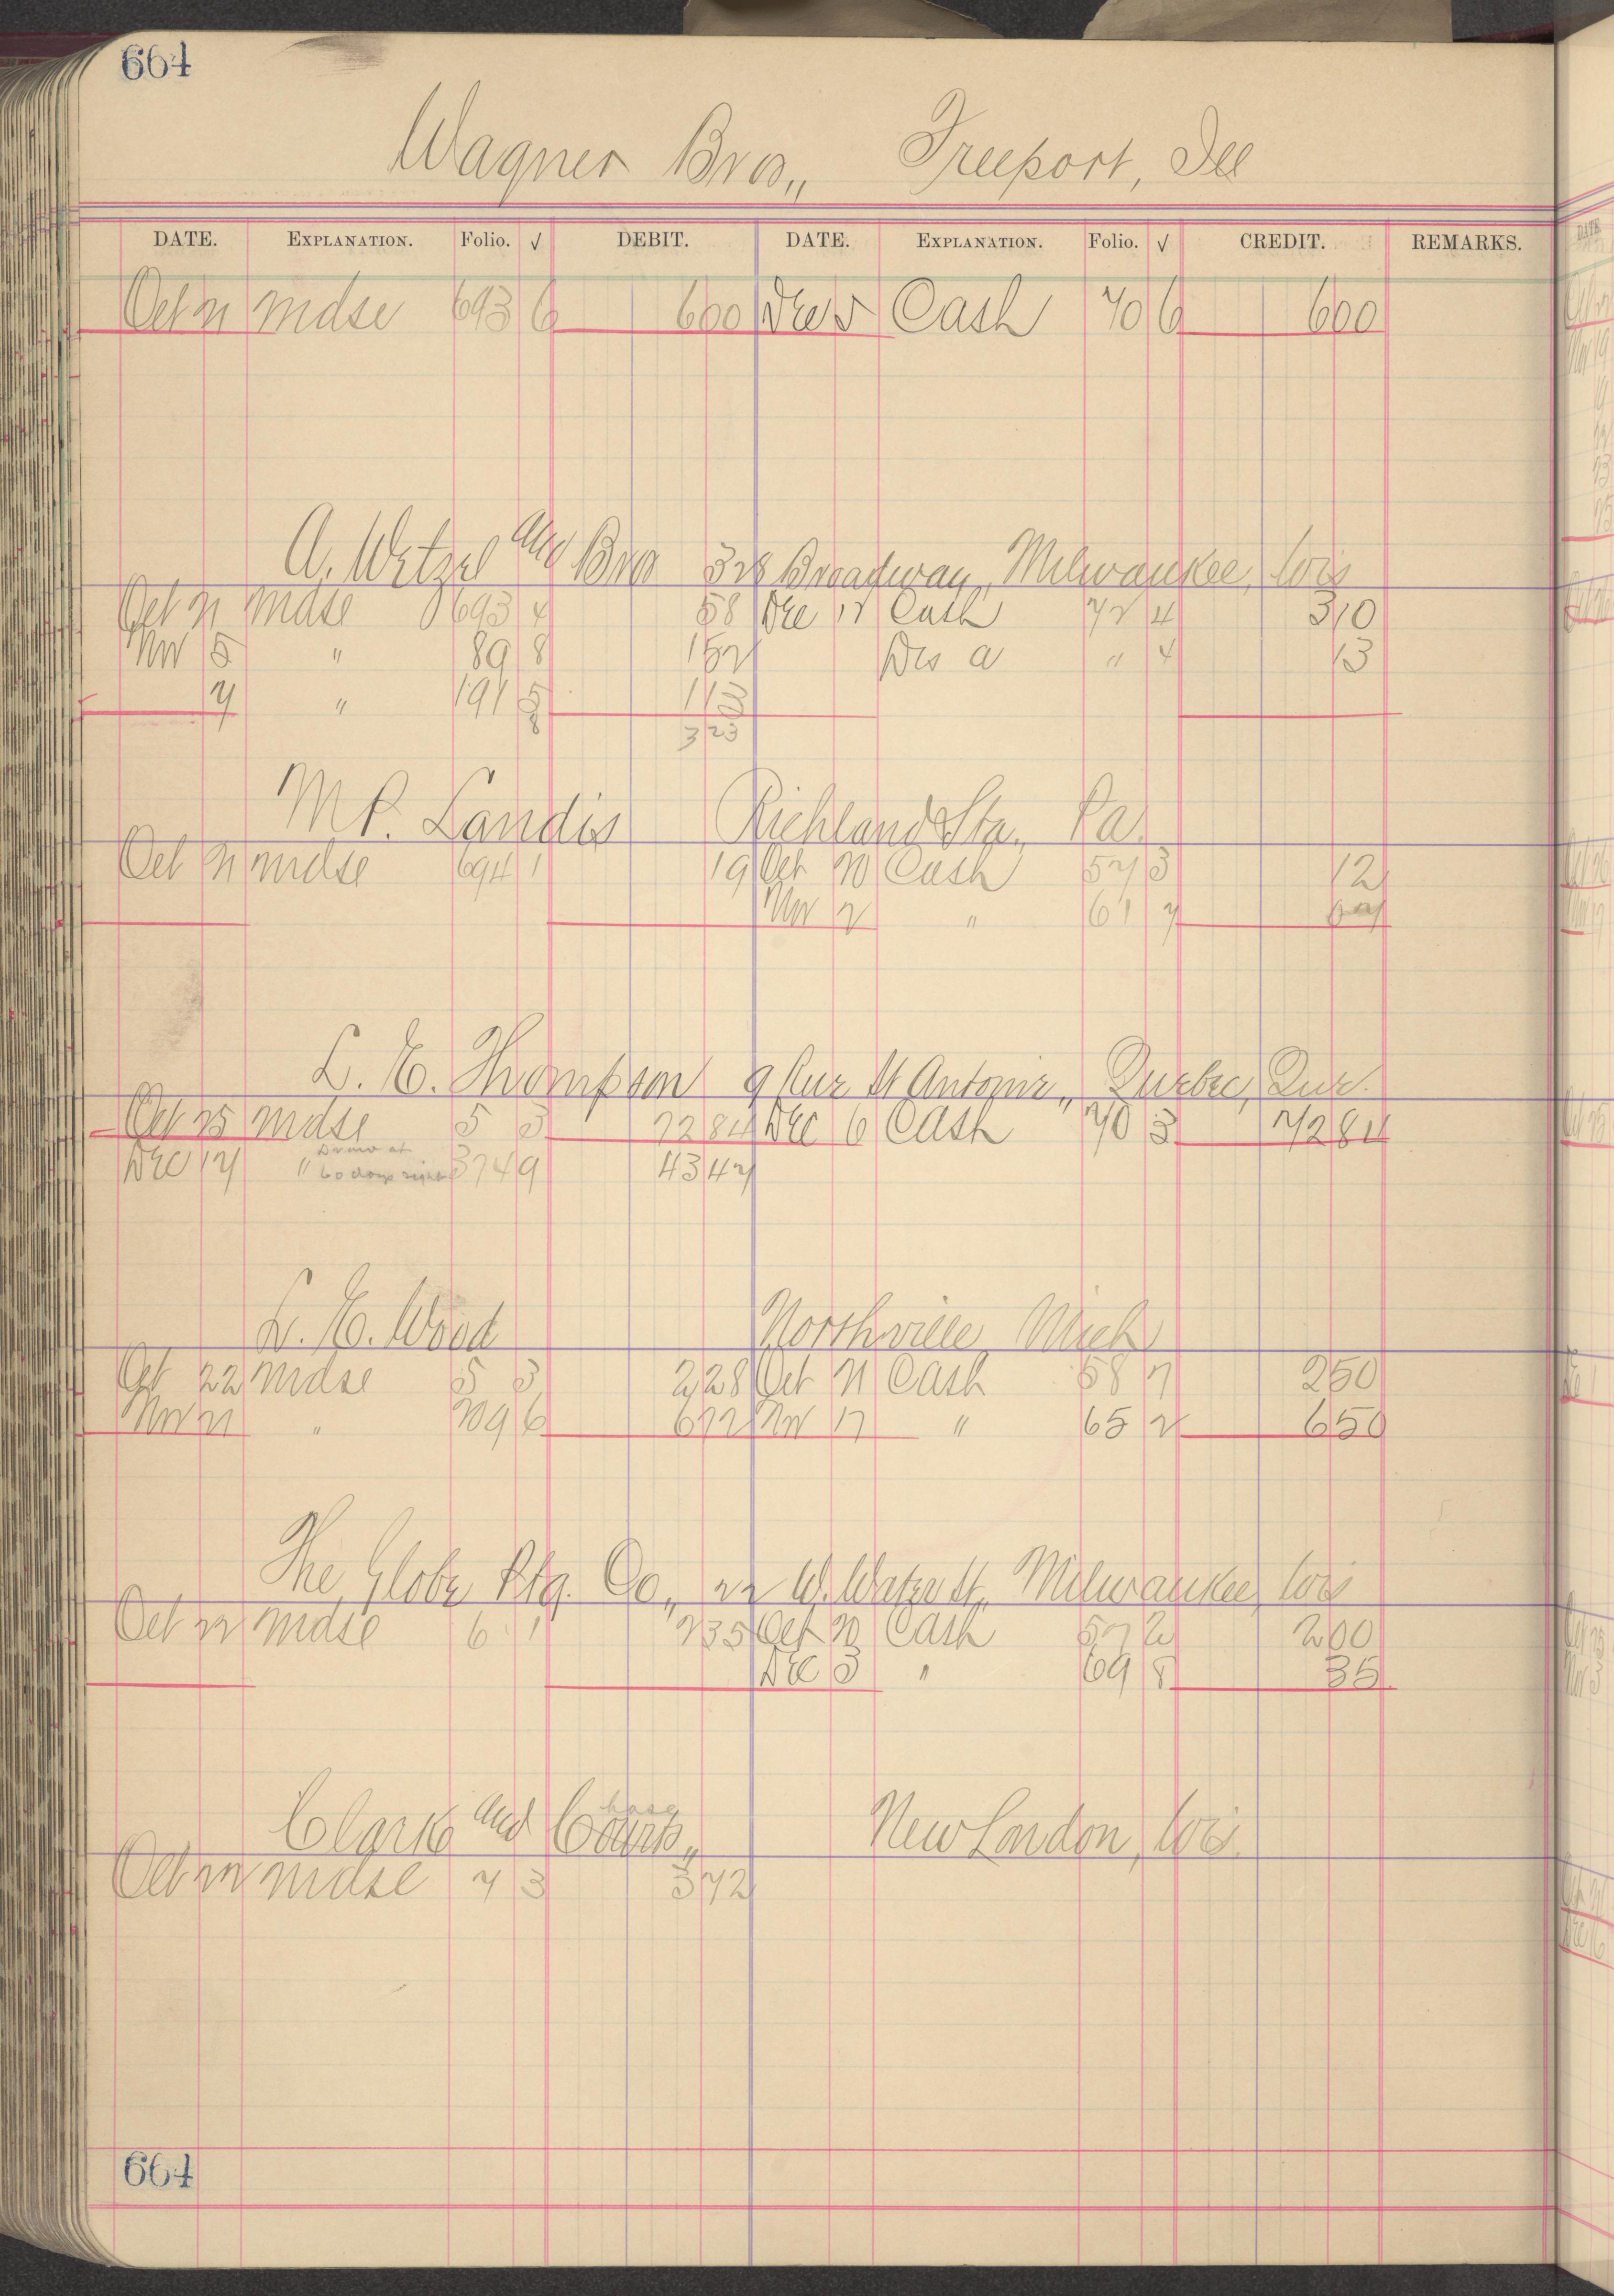 664
Wagner Bros,, Freeport, Ill
DATE. EXPLANATION. Folio. √ DEBIT. DATE. EXPLANATION. Folio. √ CREDIT. REMARKS.
Oct 21 Mdse 693 6 600 Dec 5 Cash 70 6 600
A. Wetzel and Bro 328 Broadway, Milwaukee, Wis
Oct 21 Mdse 693 4 58 Dec 12 Cash 72 4 310
Nov 5 " 89 8 152 Dis a " 4 13
7 " 191 5 113
8 323
M P. Landis Richland Sta., Pa.
Oct 21 Mdse 694 1 19 Oct 20 Cash 57 3 12
Nov 2 " 61 7
L. E. Thompson 9 Rue St Antoine,, Quebec, Que.
Oct 25 Mdse 5 3 7284 Dec 6 Cash 70 3 7284
Draw at
Dec 17 " 60 days sight 374 9 4347
L. E. Wood Northville Mich
Oct 22 Mdse 5 3 228 Oct 21 Cash 58 7 250
Nov 21 " 209 6 672 Nov 17 " 65 2 650
The Globe Ptg. Co,, 22 W. Water St,, Milwaukee, Wis
Oct 22 Mdse 6 1 235 Oct 20 Cash 57 2 200
Dec 3 " 69 8 35
Clark and New London, Wis.
Oct 22 Mdse 7 3 372
664